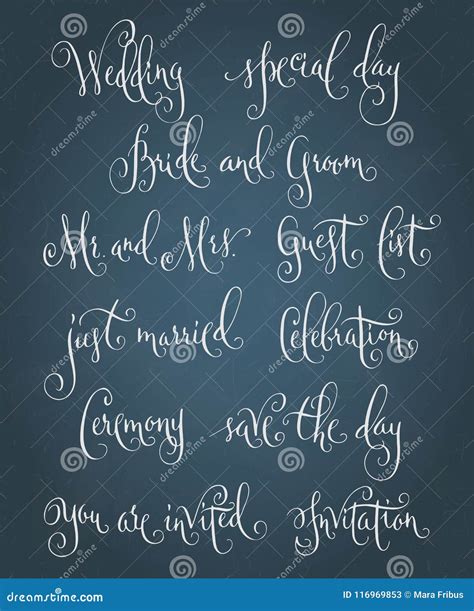 Wedding special day
Bride and Groom
Mr. and Mrs. Guest list
just married Celebration
Ceremony save the day
You are invited Invitation
dreamstime
dreamstime.com
ID 116969853 © Mara Fribus